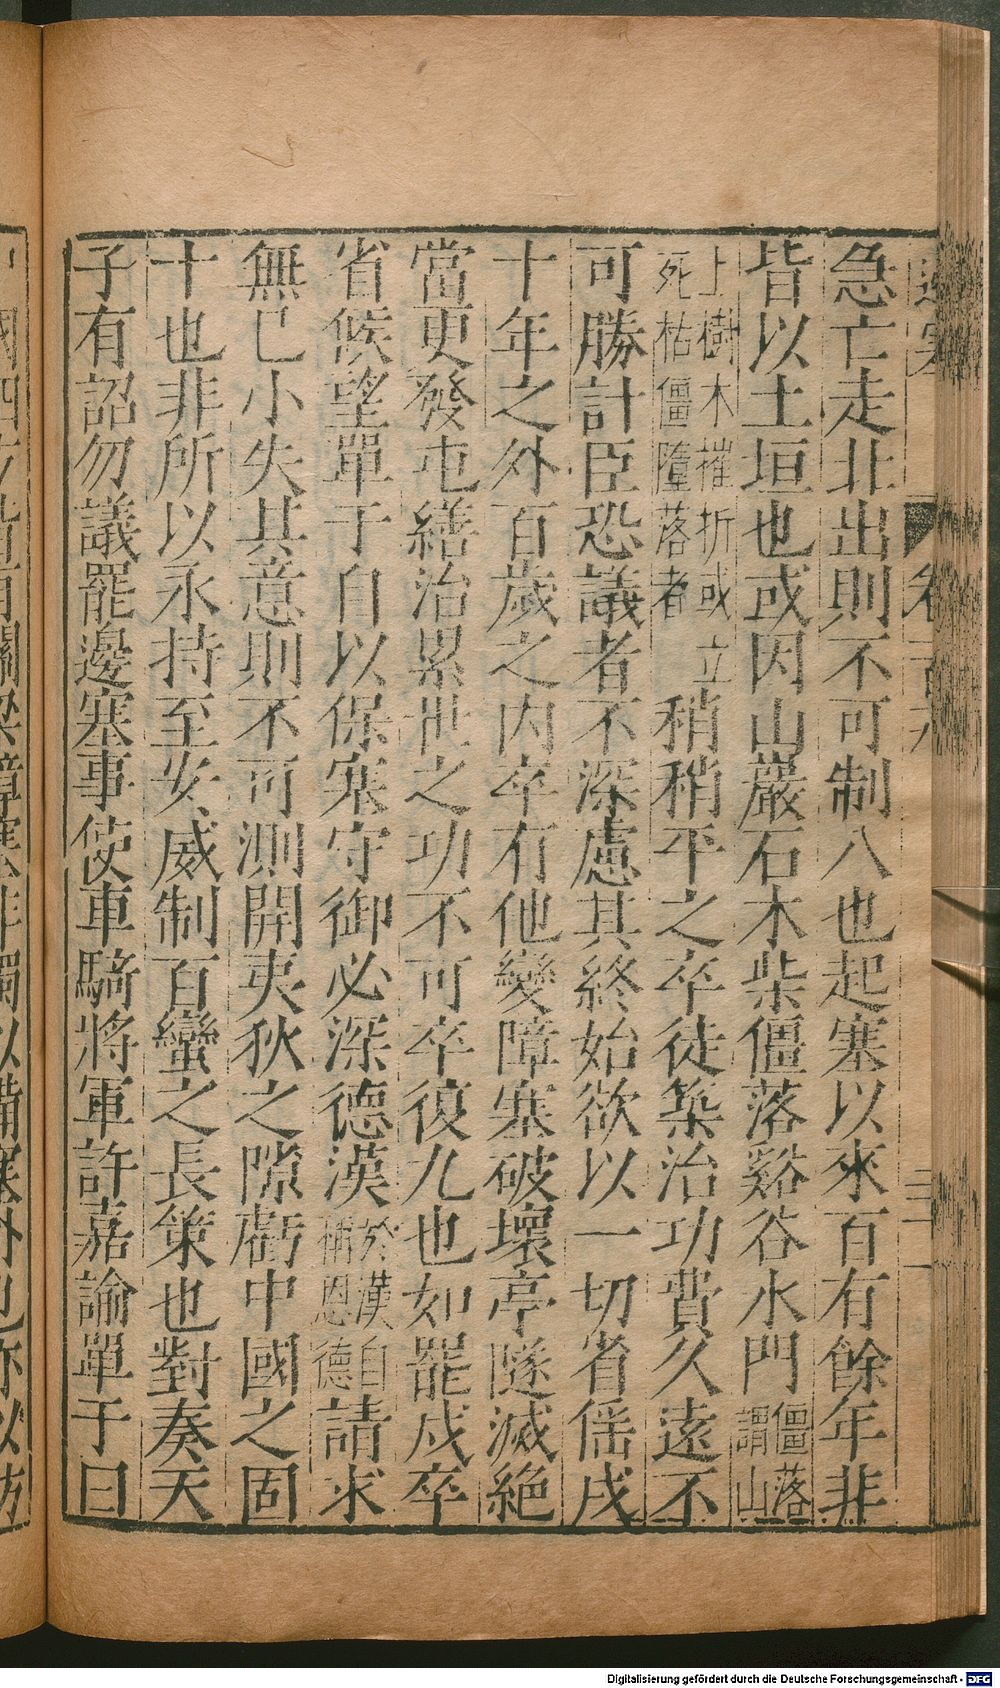 急亡走北出則不可制八也起塞以來百有餘年非
皆以土垣也或因山巖石木柴僵落谿谷水門僵落謂山
上樹木摧折或立死枯僵墮落者稍稍平之卒徒築治功費久遠不
可勝計臣恐議者不深慮其終始欲以一切省徭戍
十年之外百歲之内卒有他變障塞破壞亭隧滅絶
當更發屯繕治累世之功不可卒復九也如罷戍卒
省候望單于自以保塞守御必深德漢於漢自稱恩德請求
無已小失其意則不可測開夷狄之隙虧中國之固
十也非所以永持至安威制百蠻之長策也對奏天
子有詔勿議罷邊塞事使車騎將軍許嘉諭單于曰
Digitalisierung gefördert durch die Deutsche Forschungsgemeinschaft - DFG